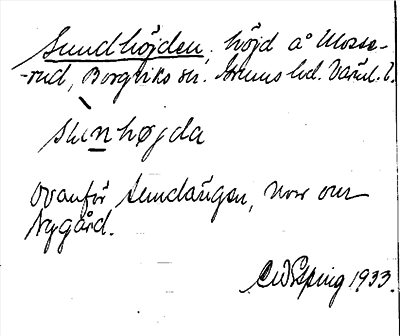 Sundhöjden, höjd å Mosse-
-rud, Borgviks sn. Grums hd. Värml. l.
sunhøgda
Ovanför Sundängen, norr om
Nygård.
C.W. Esping 1933.